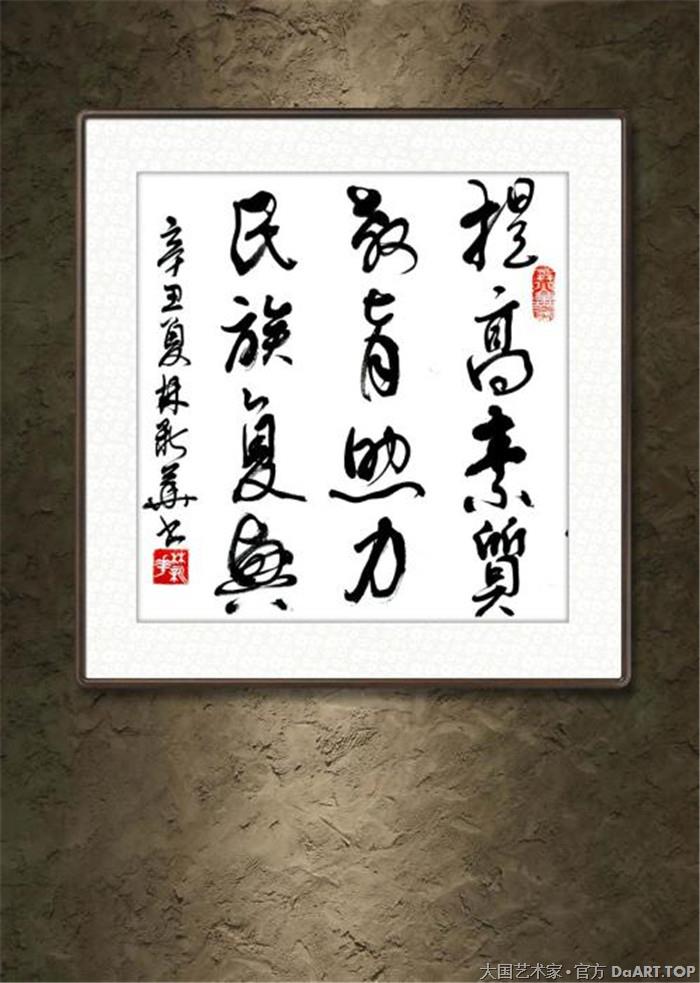 提高素質
教育助力
民族复興
辛丑夏林新華书
大国艺术家·官方 DaART.TOP